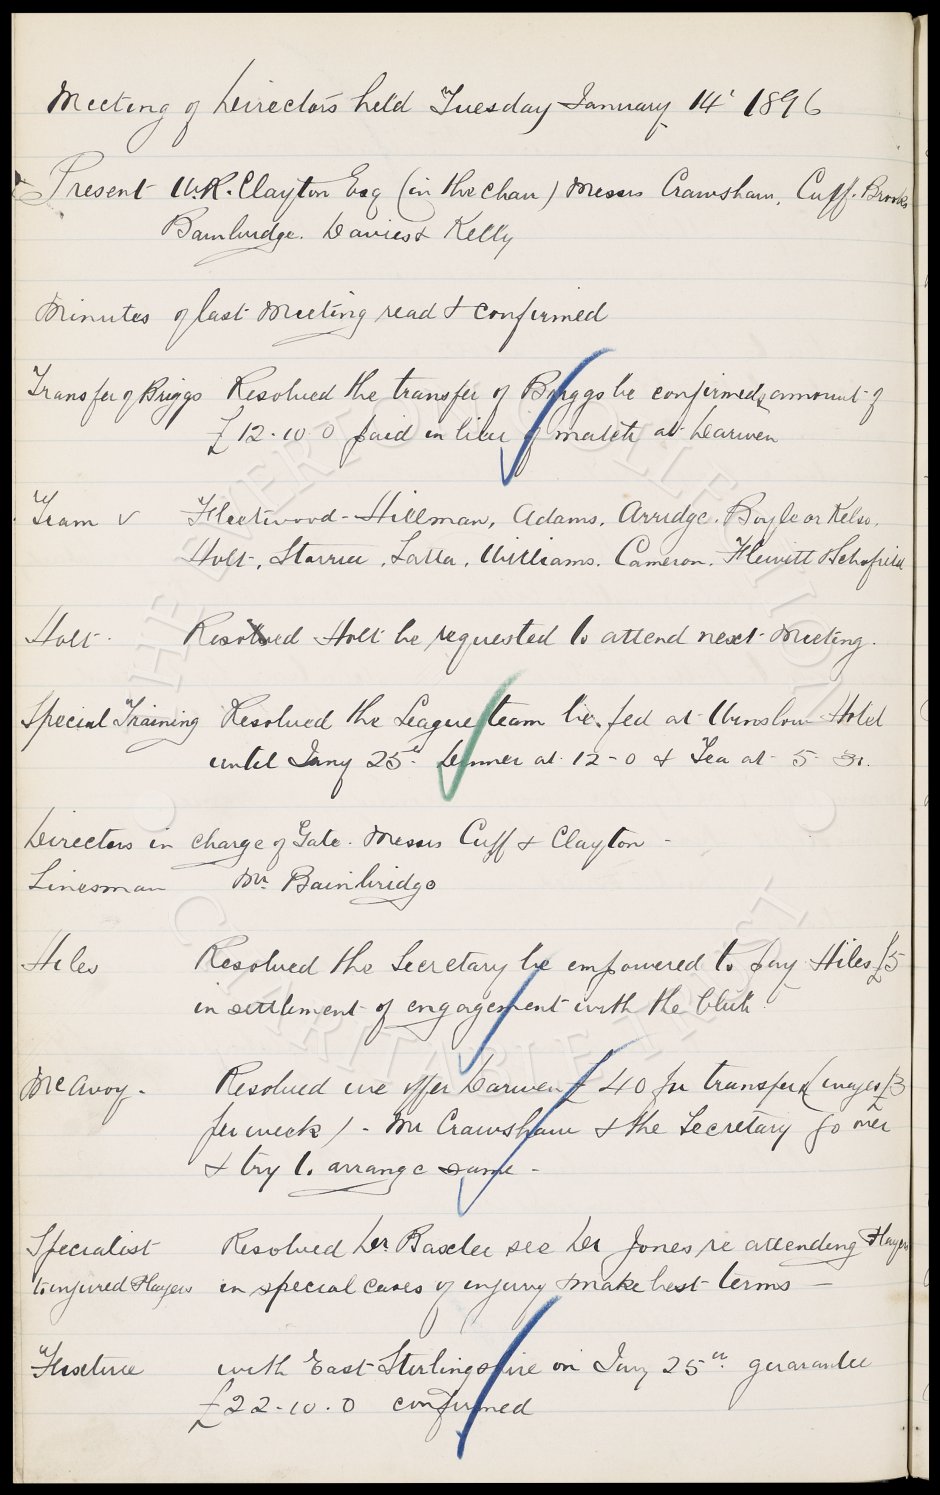 Meeting of Directors held Tuesday January 14' 1896
Present W.R. Clayton Esq (in the chair) Messrs Crawshaw, Cuff. Brooks
Bainbridge. Davies & Kelly
Minutes of last meeting read & confirmed
Transfer of Briggs Resolved the transfer of Briggs be confirmed & amount of
£12-10-0 paid in lieu of match at Darwen
Team v Fleetwood - Hillman, Adams, Arridge. Boyle or Kelso.
Holt, Storrier, Latta, Williams. Cameron. Hewitt & Schofield
Holt. Resolved Holt be requested to attend next meeting.
Special Training Resolved the League team be fed at Winslow Hotel
until Jany 25th. Dinner at 12-0 & Tea at 5
Directors in charge of Gate. Messrs Cuff & Clayton -
Linesman Mr. Bainbridge
Hiles Resolved the Secretary be empowered to pay Hiles £5
in settlement of engagement with the Club.
McAvoy. Resolved we offer Darwen £40 for transfer (wages £3
per week) - Mr Crawshaw & the Secretary go over
& try to arrange same -
Specialist Resolved Dr. Baxter see Dr Jones re attending Players
to injured Players in special cases of injury & make best terms -
Fixture with East Stirlingshire on Jany 25th. guarantee
£22-10-0 confirmed
THE EVERTON COLLECTION
CHARITABLE TRUST